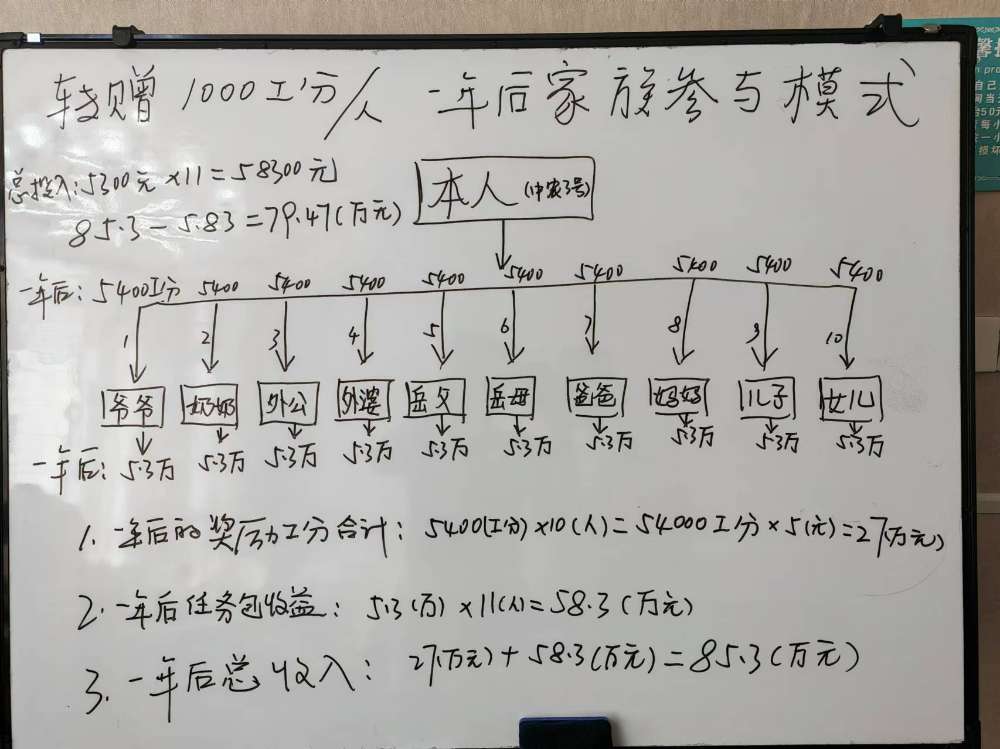 转赠1000工分/人 一年后家族参与模式
总投入:5300元×11=58300元
85.3-5.83=79.47(万元)
本人(中农3号)
一年后:5400工分 5400 5400 5400 5400 5400 5400 5400 5400 5400
1 2 3 4 5 6 7 8 9 10
爷爷 奶奶 外公 外婆 岳父 岳母 爸爸 妈妈 儿子 女儿
一年后:5.3万 5.3万 5.3万 5.3万 5.3万 5.3万 5.3万 5.3万 5.3万 5.3万
1.一年后的奖励工分合计:5400(工分)×10(人)=54000工分×5(元)=27(万元)
2.一年后任务包收益:5.3(万)×11(人)=58.3(万元)
3.一年后总收入:27(万元)+58.3(万元)=85.3(万元)
自己
50元
每小
一小
损坏